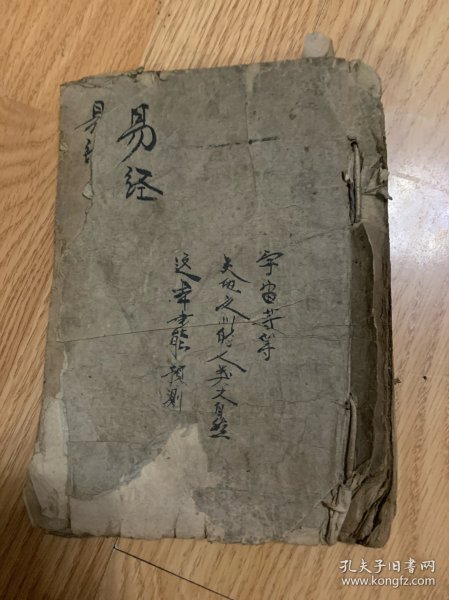 易经
易
宇宙等等
天地之
人类大自然
这本才能预测
孔夫子旧书网
www.kongfz.com